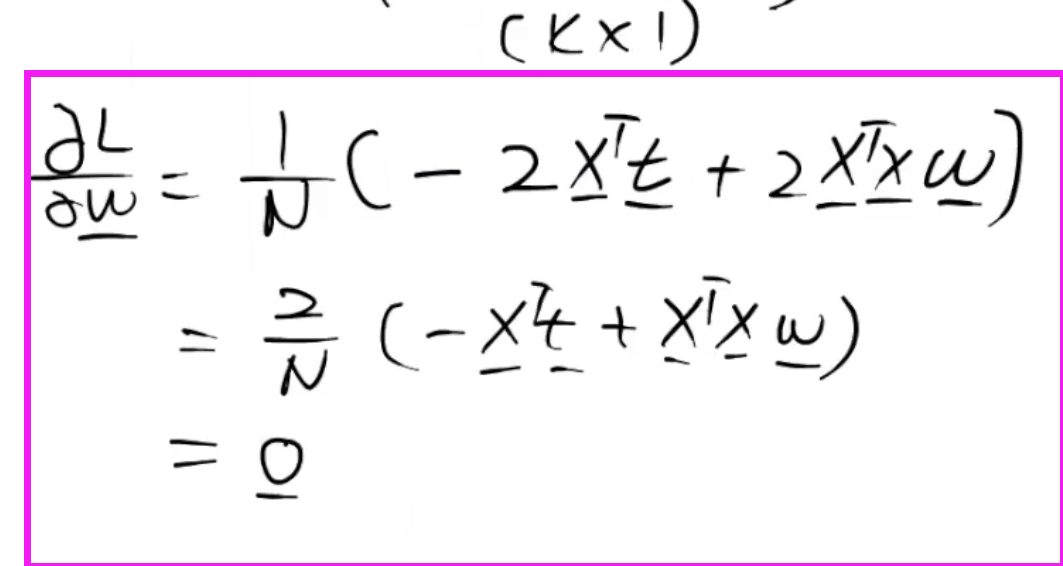 (K×1)
∂L/∂w̲ = 1/N (− 2X̲ᵀt̲ + 2X̲ᵀX̲w̲)
= 2/N (−X̲ᵀt̲ + X̲ᵀX̲w̲)
= 0̲